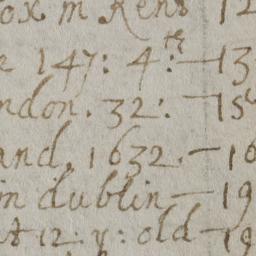 ox in Kent 12
147: 4th: — 13
ndon. 32: — 15
and, 1632. — 16
in dublin — 19
at 12: y: old — 19